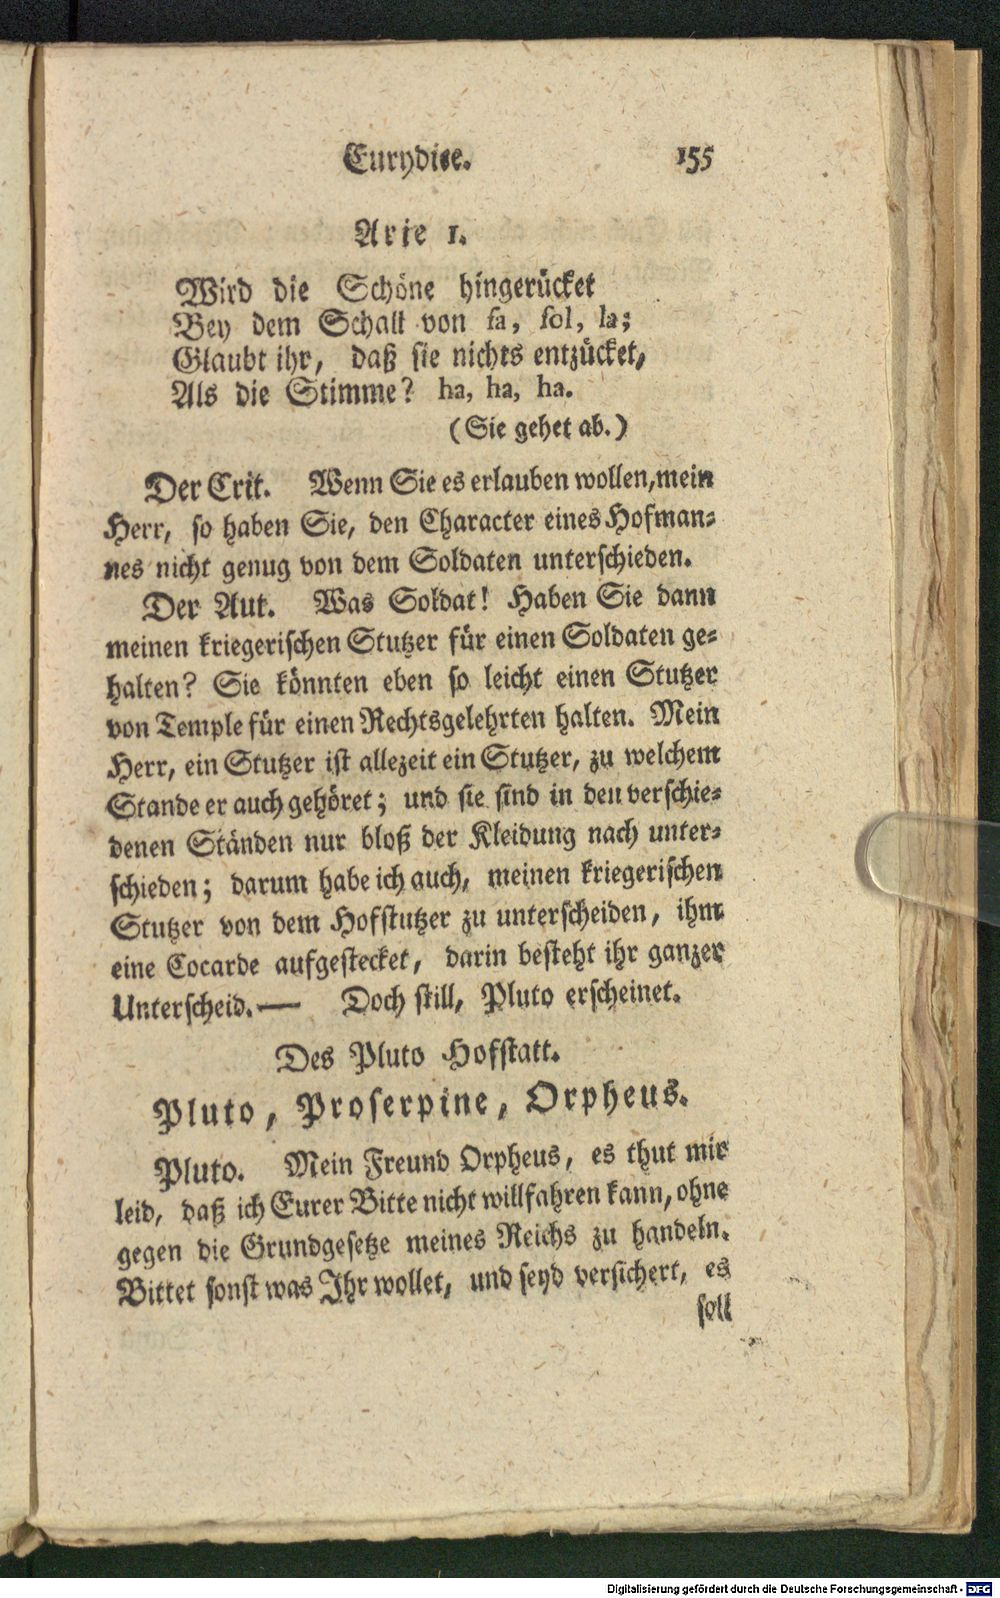 Eurydice. 155
Arie 1.
Wird die Schöne hingerücket
Bey dem Schall von fa, sol, la;
Glaubt ihr, daß sie nichts entzücket,
Als die Stimme? ha, ha, ha.
(Sie gehet ab.)
Der Crit. Wenn Sie es erlauben wollen, mein
Herr, so haben Sie, den Character eines Hofman-
nes nicht genug von dem Soldaten unterschieden.
Der Aut. Was Soldat! Haben Sie dann
meinen kriegerischen Stutzer für einen Soldaten ge-
halten? Sie könnten eben so leicht einen Stutzer
von Temple für einen Rechtsgelehrten halten. Mein
Herr, ein Stutzer ist allezeit ein Stutzer, zu welchem
Stande er auch gehöret; und sie sind in den verschie-
denen Ständen nur bloß der Kleidung nach unter-
schieden; darum habe ich auch, meinen kriegerischen
Stutzer von dem Hofstutzer zu unterscheiden, ihm
eine Cocarde aufgestecket, darin besteht ihr ganzer
Unterscheid.— Doch still, Pluto erscheinet.
Des Pluto Hofstatt.
Pluto, Proserpine, Orpheus.
Pluto. Mein Freund Orpheus, es thut mir
leid, daß ich Eurer Bitte nicht willfahren kann, ohne
gegen die Grundgesetze meines Reichs zu handeln.
Bittet sonst was Ihr wollet, und seyd versichert, es
soll
Digitalisierung gefördert durch die Deutsche Forschungsgemeinschaft - DFG